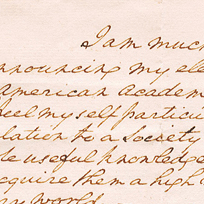 I am much
nnouncing my ele
American Academ
feel myself particu
elation to a Society
le useful knowledge
cquire them a high